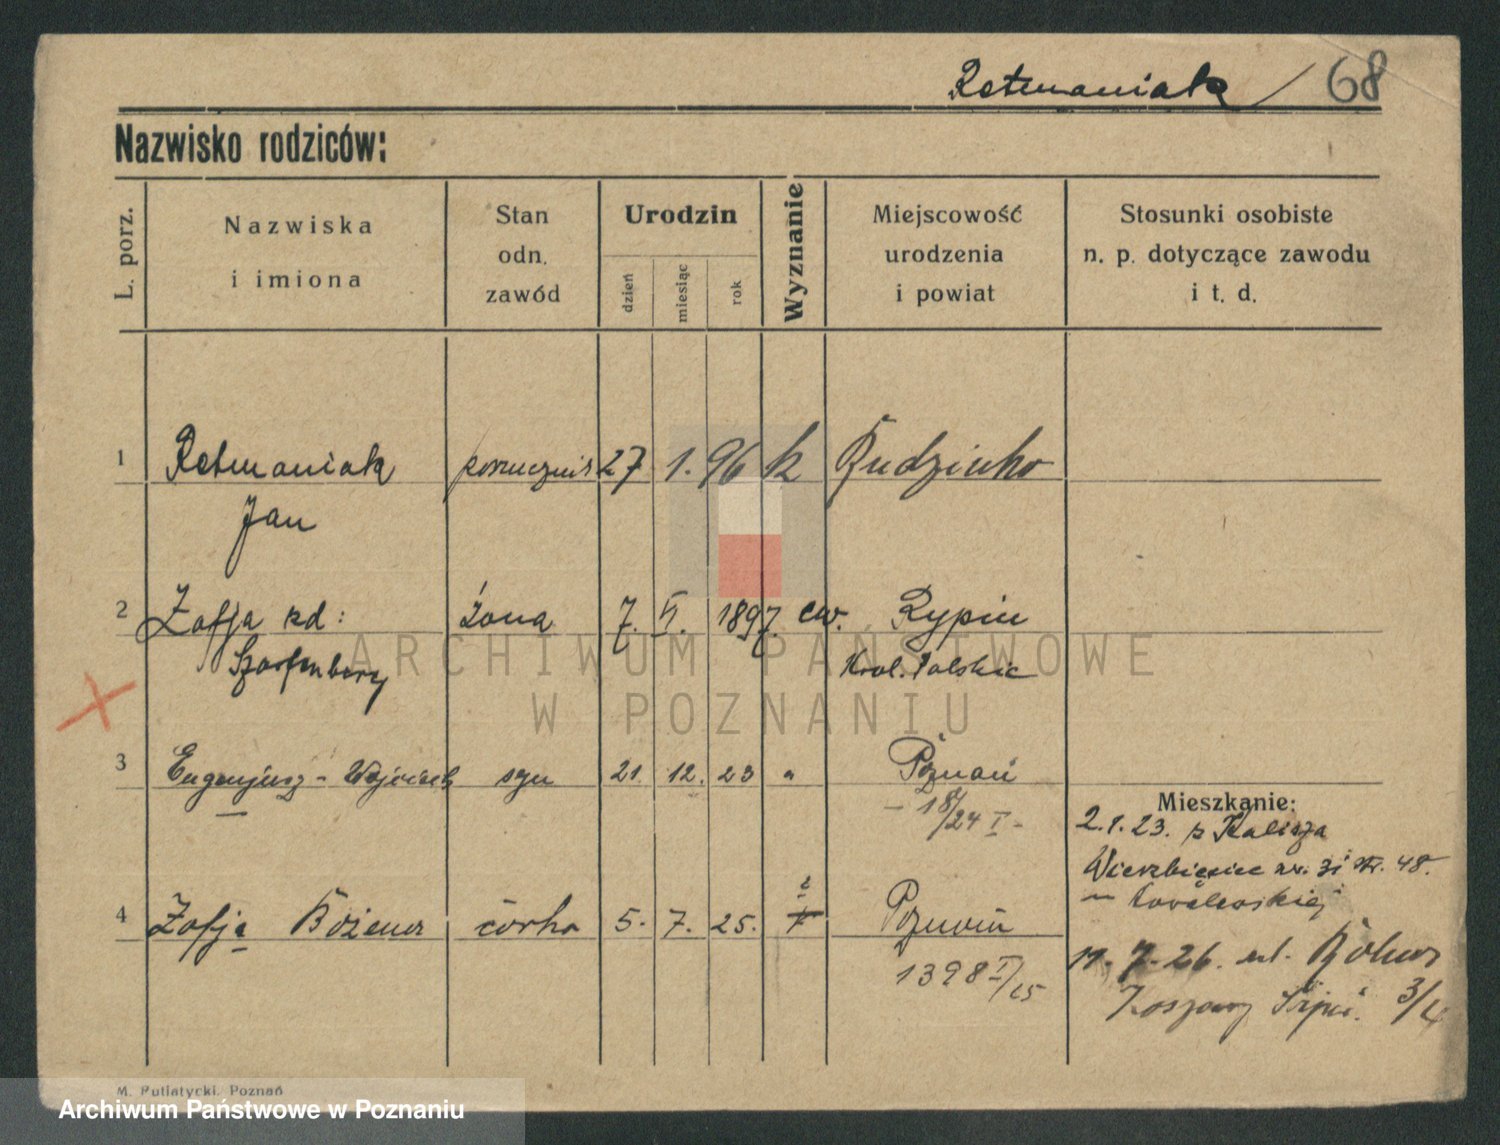 Retmaniak / 68
Nazwisko rodziców:
L. porz.
Nazwiska
i imiona
Stan
odn.
zawód
Urodzin
dzień
miesiąc
rok
Wyznanie
Miejscowość
urodzenia
i powiat
Stosunki osobiste
n. p. dotyczące zawodu
i t. d.
1 Retmaniak porucznik 27 1. 96 k Rudzinko
Jan
2 Zofja zd: żona 7. VI. 1897. ew. Rypin
Szarfenberg Krol. Polskie
3 Eugenjusz - Wojciech syn 21 12. 23 " Poznań
- 18/24 I -
Mieszkanie:
2.1.23. z Kalisza
Wierzbięcice nr. 31 tr. 48.
4 Zofja Bożena córka 5. 7. 25. Poznań
1398 I/25
17.7.26. ul.
Koszary 3/4
M. Putiatycki, Poznań
ARCHIWUM PAŃSTWOWE
W POZNANIU
Archiwum Państwowe w Poznaniu